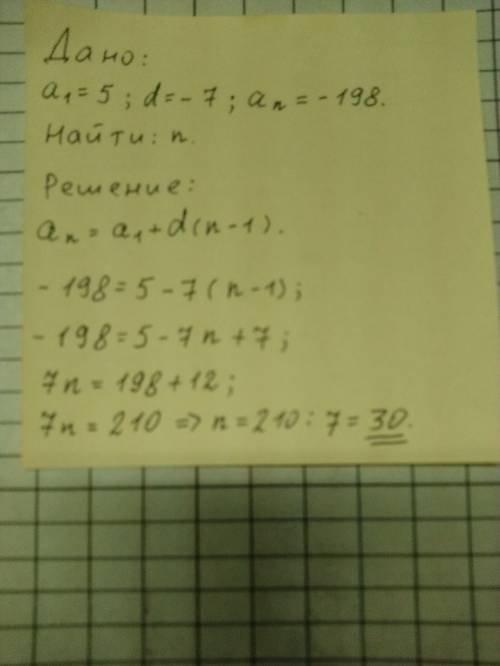 Дано:
a₁ = 5 ; d = - 7 ; aₙ = - 198.
Найти: n.
Решение:
aₙ = a₁ + d(n - 1).
- 198 = 5 - 7(n - 1);
- 198 = 5 - 7n + 7;
7n = 198 + 12;
7n = 210 => n = 210 : 7 = 30.